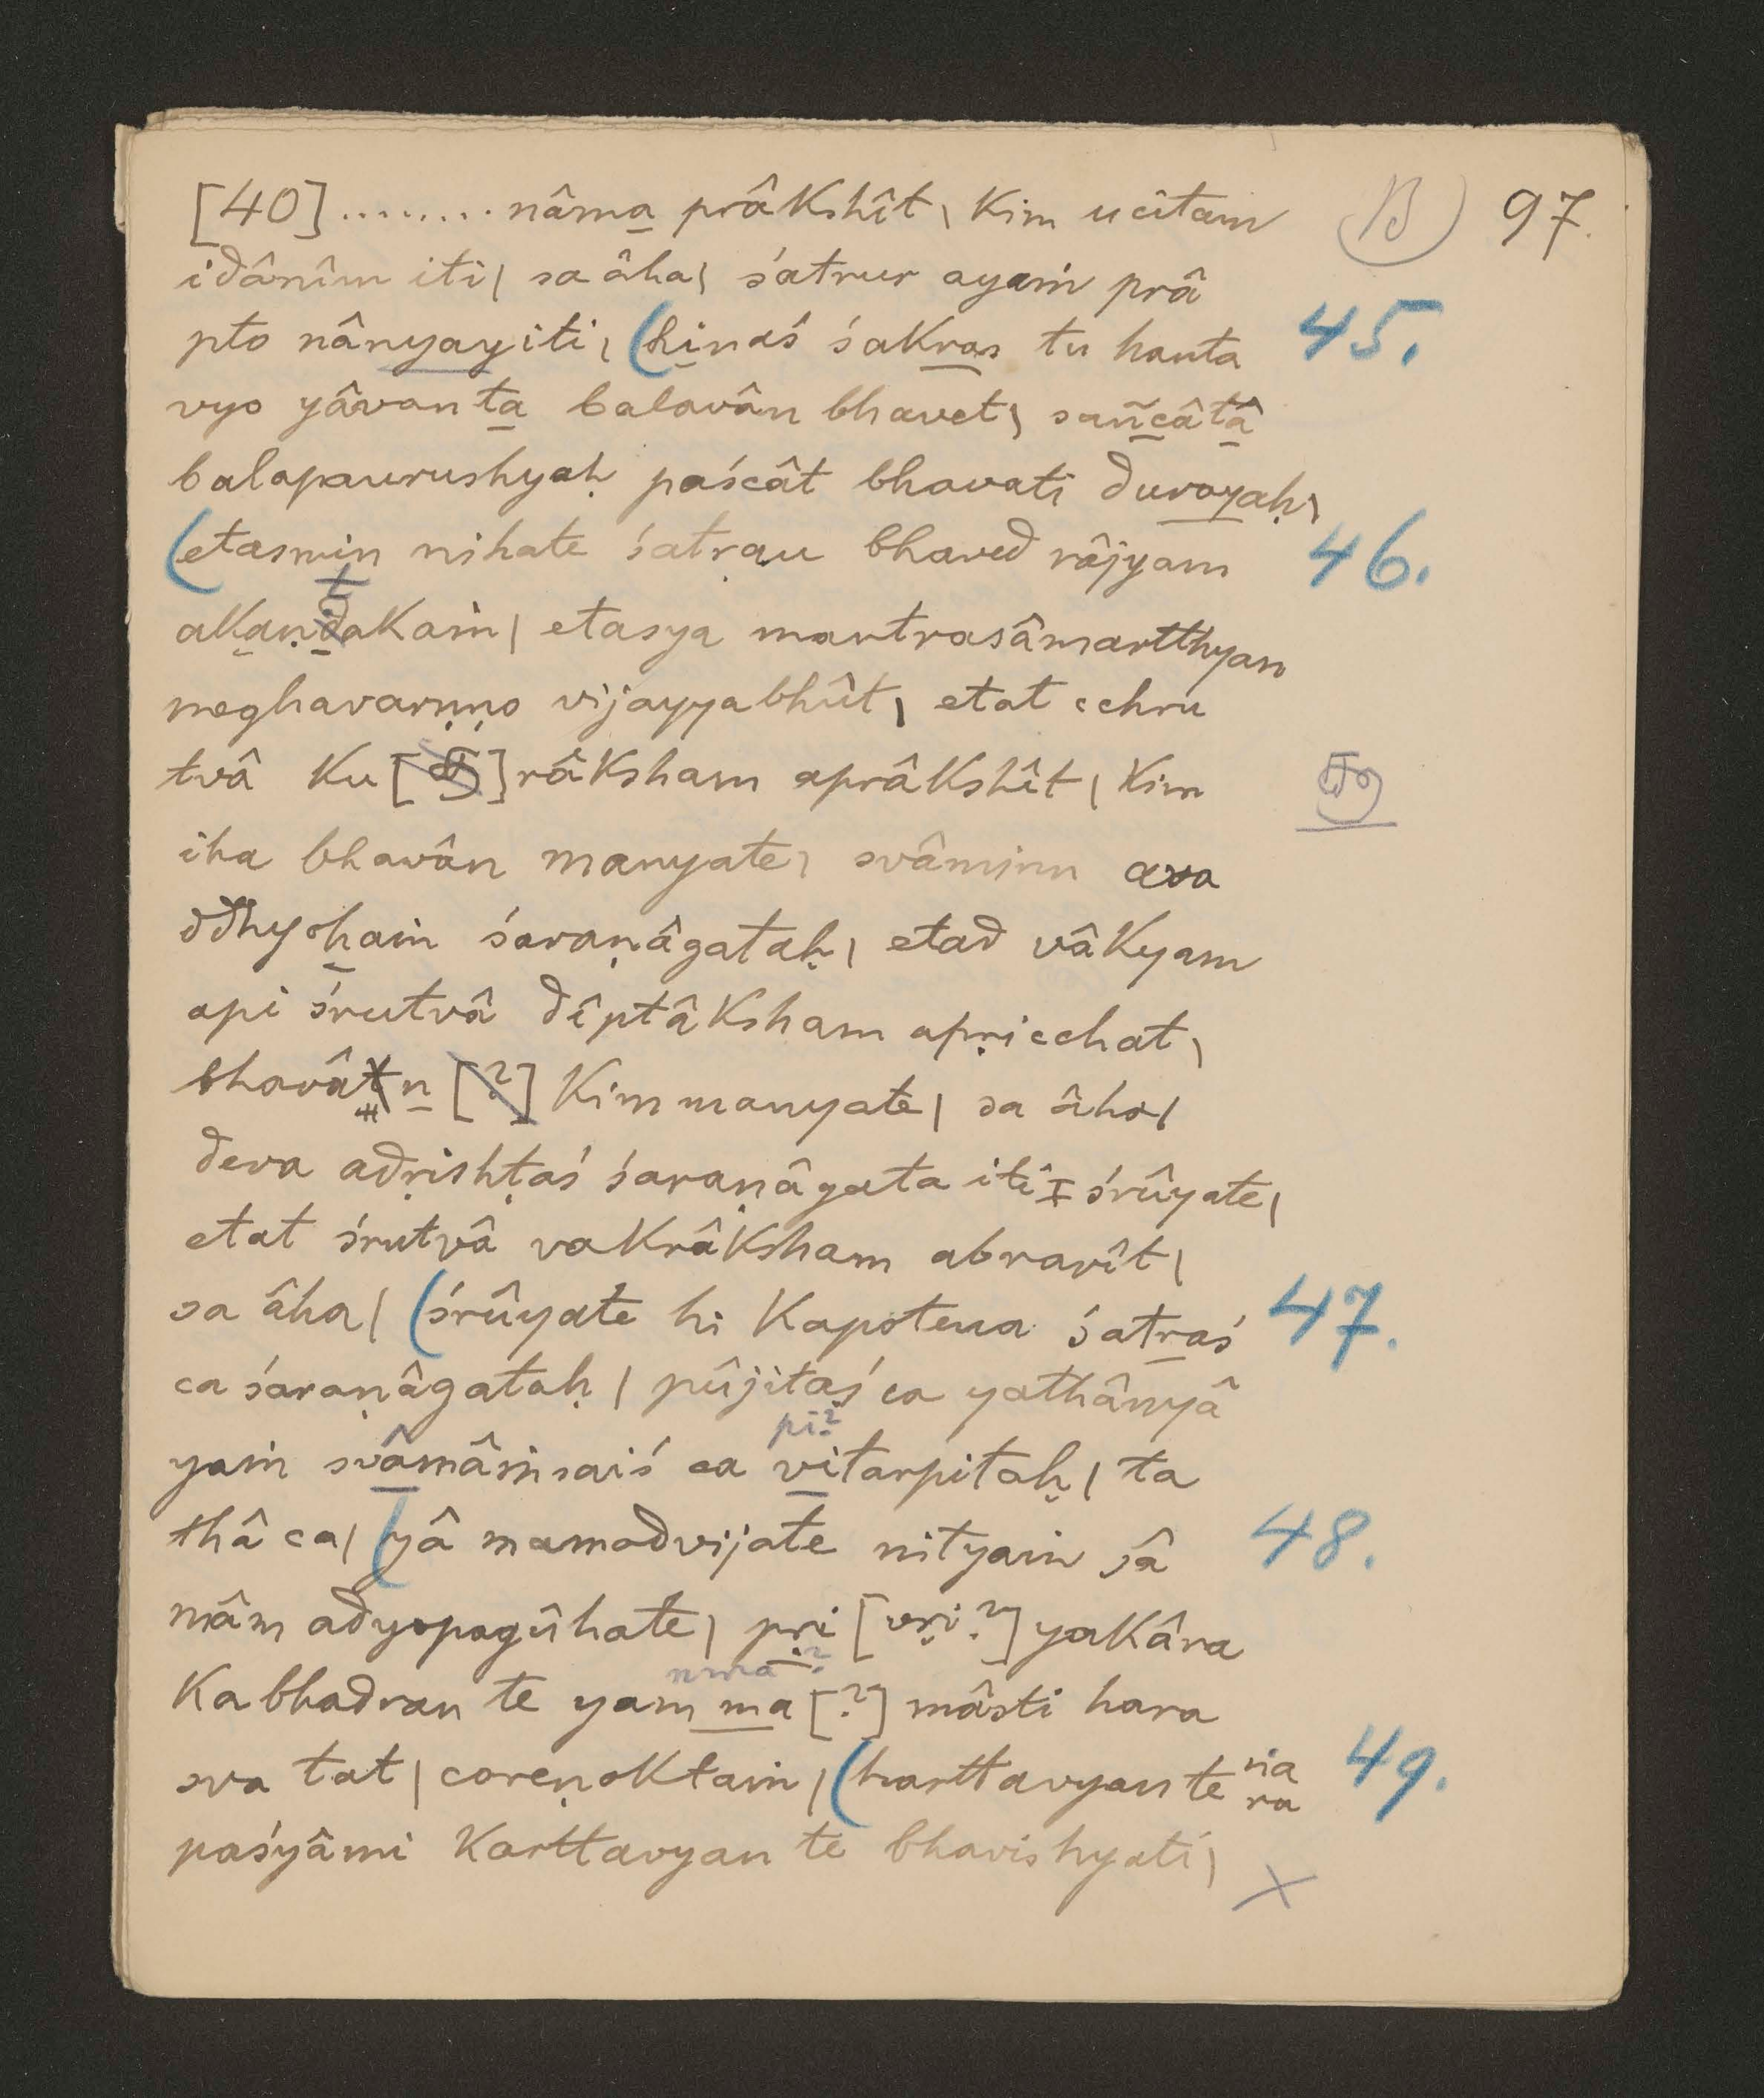 [40] ........ nâma prâkshît \ kim ucitam (B) 97.
idânîm iti | sa âha | śatrur ayaṁ prâ
pto nânyayiti | (hînaś śakras tu hanta 45.
vyo yâvan ta balavân bhavet | sañcâtâ
balapaurushyaḥ paścât bhavati durayaḥ |
(etasmin nihate śatrau bhaved râjyam 46.
akaṇṭakaṁ | etasya mantrasâmartthyan
meghavarṇṇo vijayyabhût | etat cchru
tvâ ku râksham aprâkshît | kim
iha bhavân manyate | svâminn ava
ddhyohaṁ śaraṇâgataḥ | etad vâkyam
api śrutvâ dîptâksham apṛicchat |
bhavân kim manyate | sa âha |
deva adṛishṭaś śaraṇâgata iti śrûyate |
etat śrutvâ vakrâksham abravît |
sa âha | (śrûyate hi kapotena śatraś 47.
ca śaraṇâgataḥ | pûjitaś ca yathânyâ
pi?
yaṁ svâmâṁsaiś ca vitarpitaḥ | ta
thâ ca | (yâ mamodvijate nityaṁ sâ 48.
mâm adyopagûhate | pṛi [vṛi?] yakâra
nma ?
ka bhadran te yam ma [?] mâsti hara
sva tat | coreṇoktaṁ | (harttavyan te na 49.
paśyâmi karttavyan te bhavishyati | ×